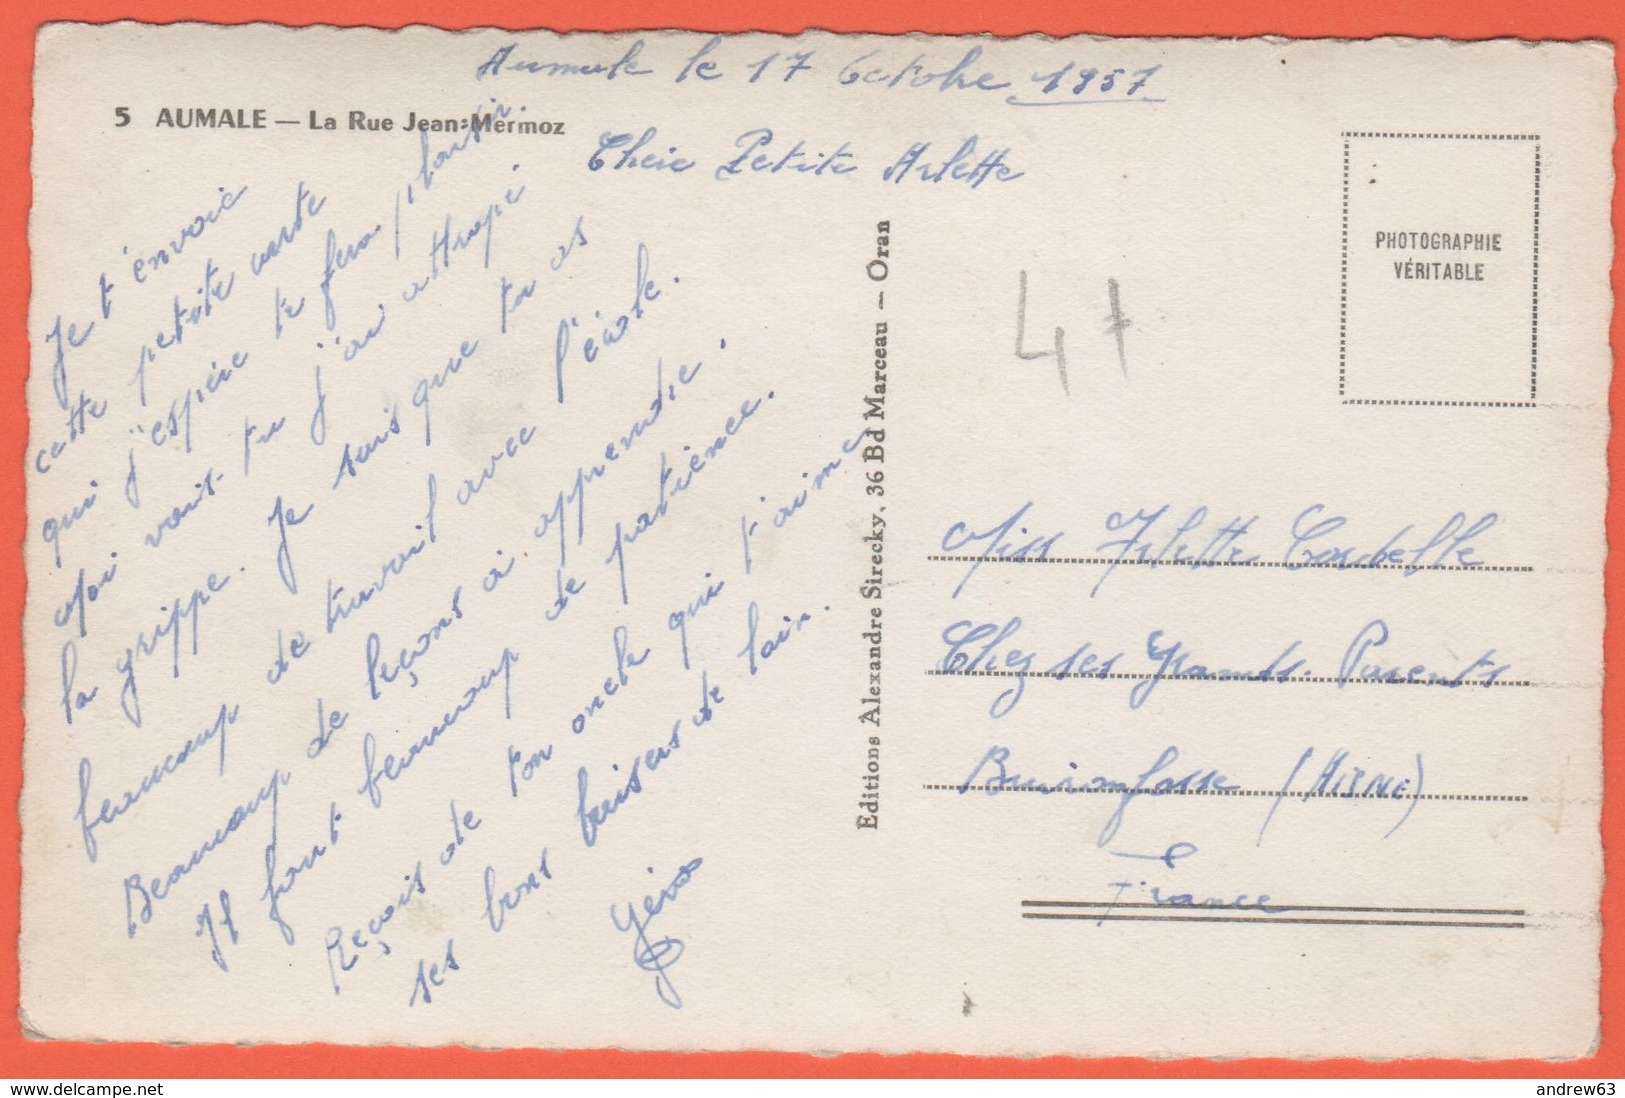 Aumale le 17 Octobre 1957
5 AUMALE — La Rue Jean-Mermoz
Cheie Petite Arlette
Je t'envoie
cette petite carte
qui j'espéie te fera plaisir.
Moi vois-tu j'ai attrapé
la grippe. Je sais que tu as
beaucoup de travail avec l'école.
Beaucoup de leçons à apprendre.
Il faut beaucoup de patience.
Reçois de ton oncle qui t'aime
ses bons baisers de loin.
Editions Alexandre Sirecky, 36 Bd Marceau — Oran
47
PHOTOGRAPHIE
VÉRITABLE
Miss Arlette
Chez ses Grands-Parents
Buironfosse (AISNE)
France
delcampe.net
andrew63